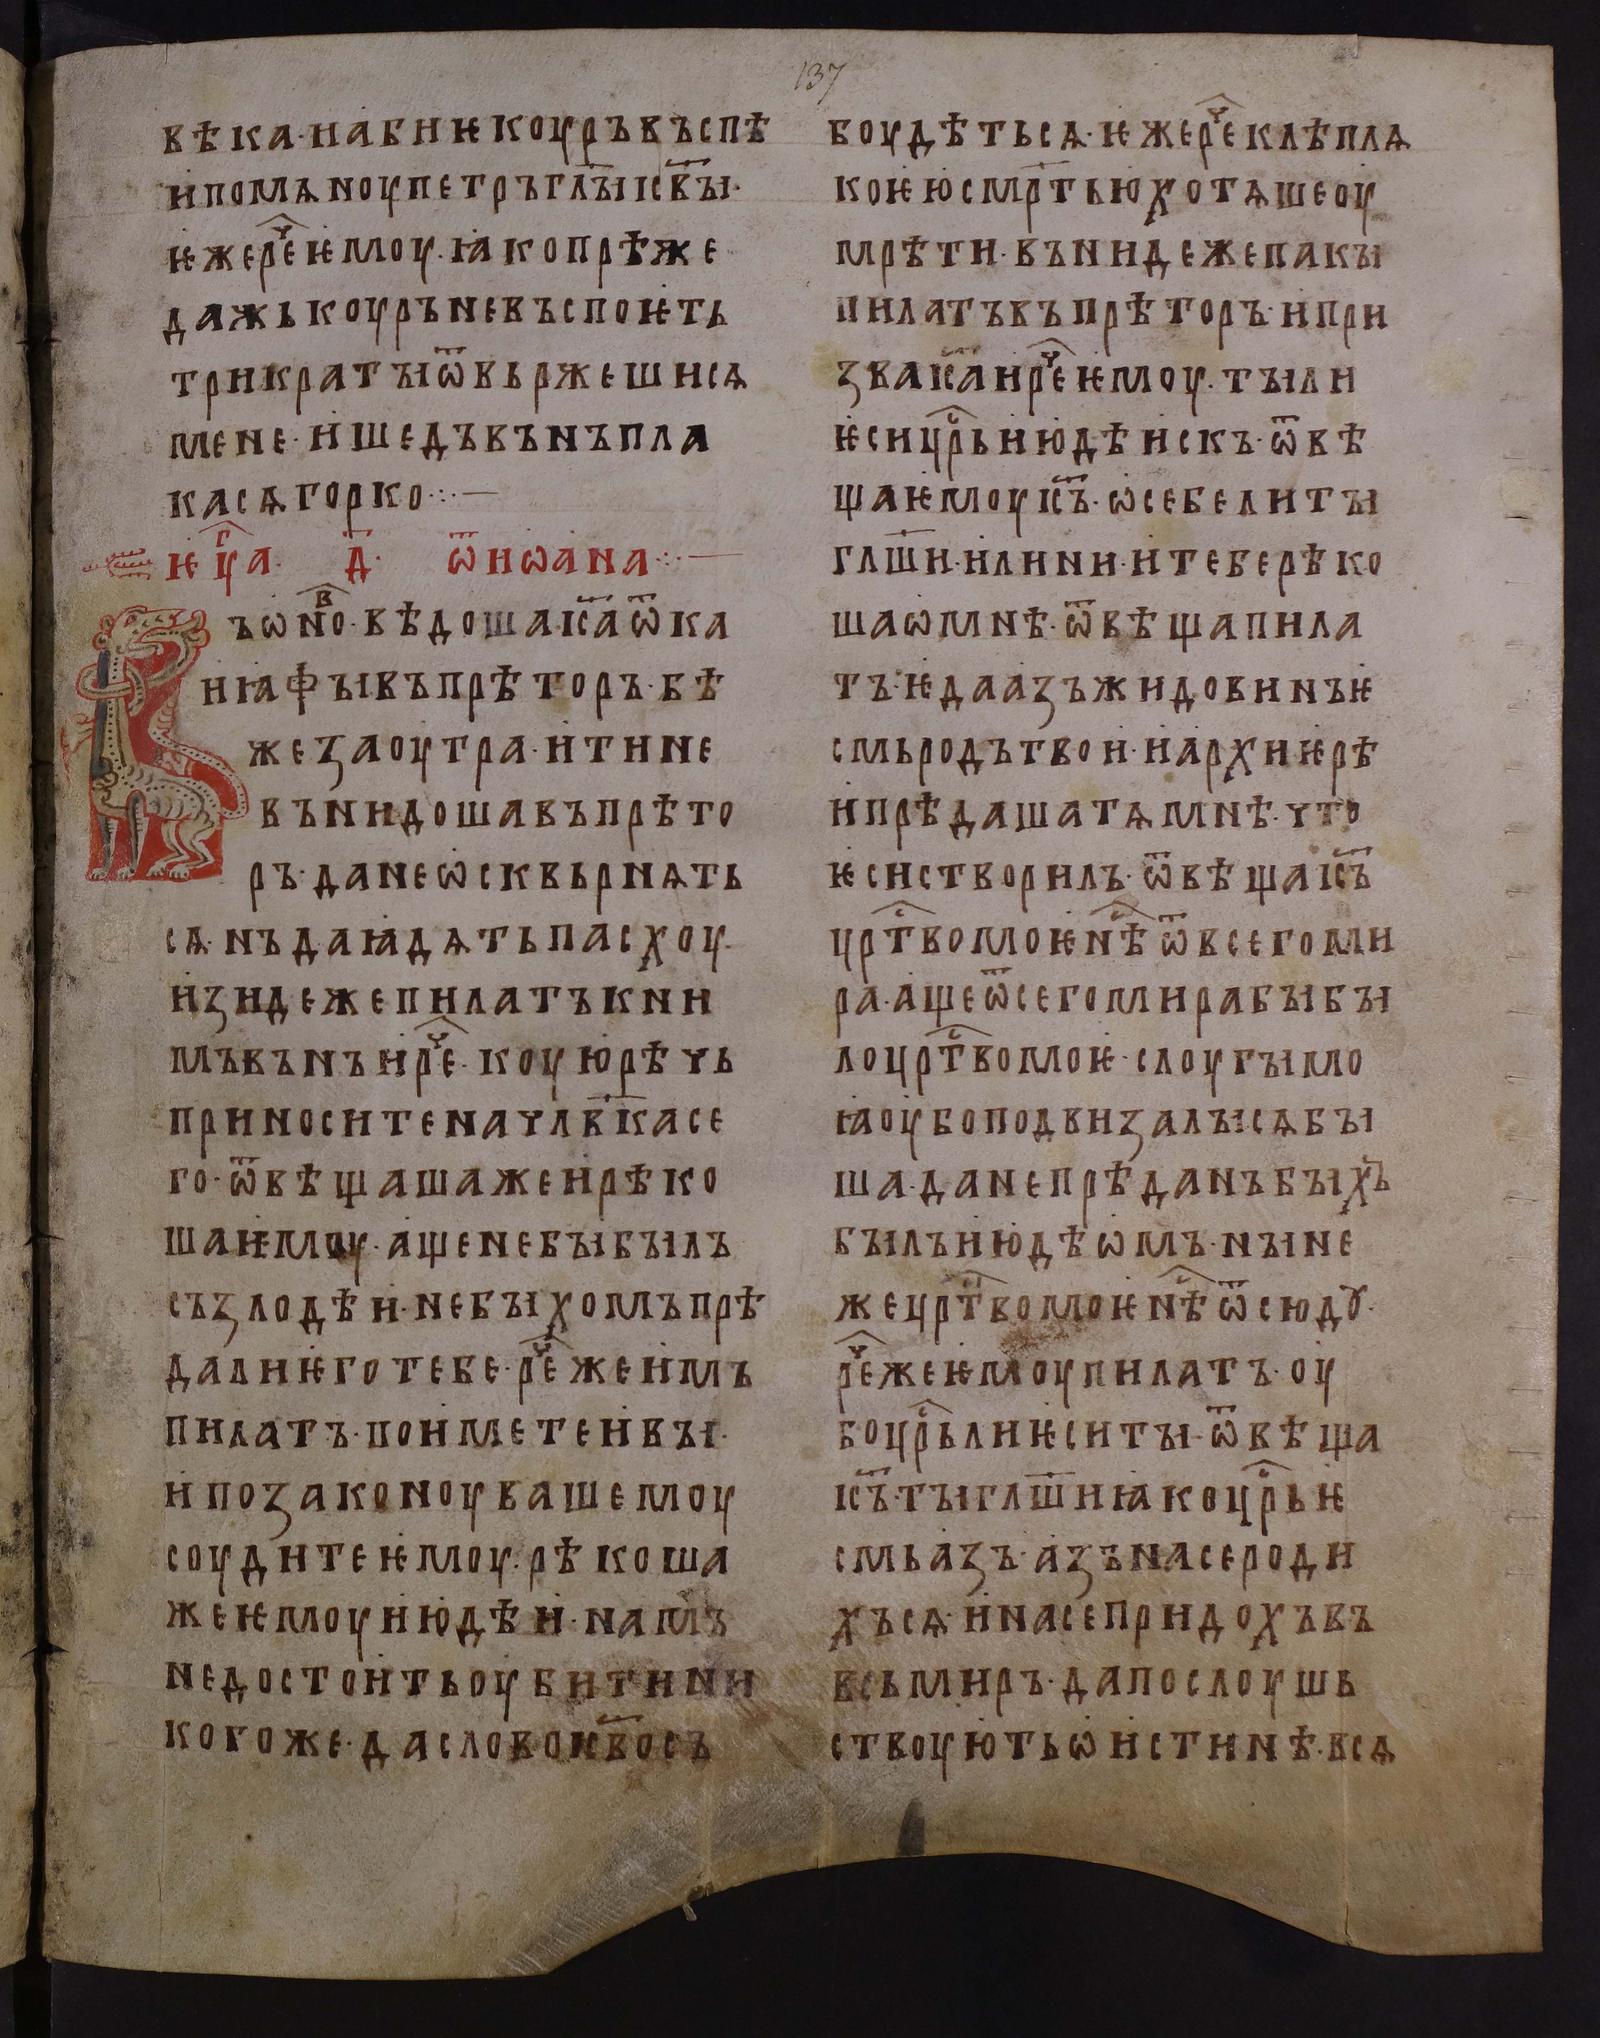 137
вѣка·наби ѥкоуръвъспѣ
ипомѧноупетръгл҃ыіс҃вы·
ѥжере҃ѥмоу·ꙗкопрѣже
дажькоуръневъспоѥть
трикратыѿвьржешисѧ
мене·ишедъвънъпла
касѧгорко
ѥуⷢ҇а д҃ ѿиѡана
ъѡноⷡ҇·вѣдошаіс҃аѿка
ниꙗфывъпрѣторъ·бѣ
жезаоутра·итине
вънидошавъпрѣто
ръ·данеѡсквьрнѧть
сѧ·нъдаꙗдѧтьпасхоу·
изидежепилатъкни
мъвънъирⷱ҇е·коуюрѣчь
приноситеначлв҃касе
го·ѿвѣщашажеирѣко
шаѥмоу·ащенебыбылъ
съзлодѣи·небыхомъпрѣ
далиѥготебе·рⷱ҇ежеимъ
пилатъ·поиметеивы·
ипозаконоувашемоу
соудитеѥмоу·рѣкоша
жеѥмоуиюдѣи·намъ
недостоитьоубитини
когоже·дасловоіс҃восъ
боудѣтьсѧ·ѥжерⷱ҇еклѣплѧ
коѥюсмр҃тьюхотѧшеоу
мрѣти·вънидежепакы
пилатъвъпрѣторъ·ипри
зваіс҃аирⷱ҇еѥмоу·тыли
ѥсицрⷭ҇ьиюдѣискъ·ѿвѣ
щаѥмоуіс҃ъ·ѡсебелиты
глш҃и·илиниитеберѣко
шаѡмнѣ·ѿвѣщапила
тъ·ѥдаазъжидовинъѥ
смьродътвои·иархиѥрѣ
ипрѣдашатѧмнѣ·что
ѥсистворилъ·ѿвѣщаіс҃ъ
црⷭ҇твомоѥнѣⷭ҇ѿвсегоми
ра·ащеѿсегомирабыбы
лоцрⷭ҇твомоѥ·слоугымо
ꙗоубоподвизалысѧбы
ша·данепрѣданъбыхъ
былъиюдѣѡмъ·ныне
жецрⷭ҇твомоѥнѣⷭ҇ѿсюдꙋ·
рⷱ҇ежеѥмоупилатъ·оу
боцрⷭ҇ьлиѥситы·ѿвѣща
іс҃ъ·тыглш҃иꙗкоцрⷭ҇ьѥ
смьазъ·азънасероди
хъсѧ·инасепридохъвъ
всьмиръ·дапослоушь
ствоуютьѡистинѣ·всѧ